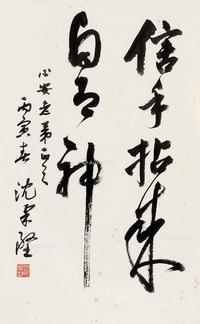 信手拈來
自有神
心安老弟正之
丙寅春 沈柔坚